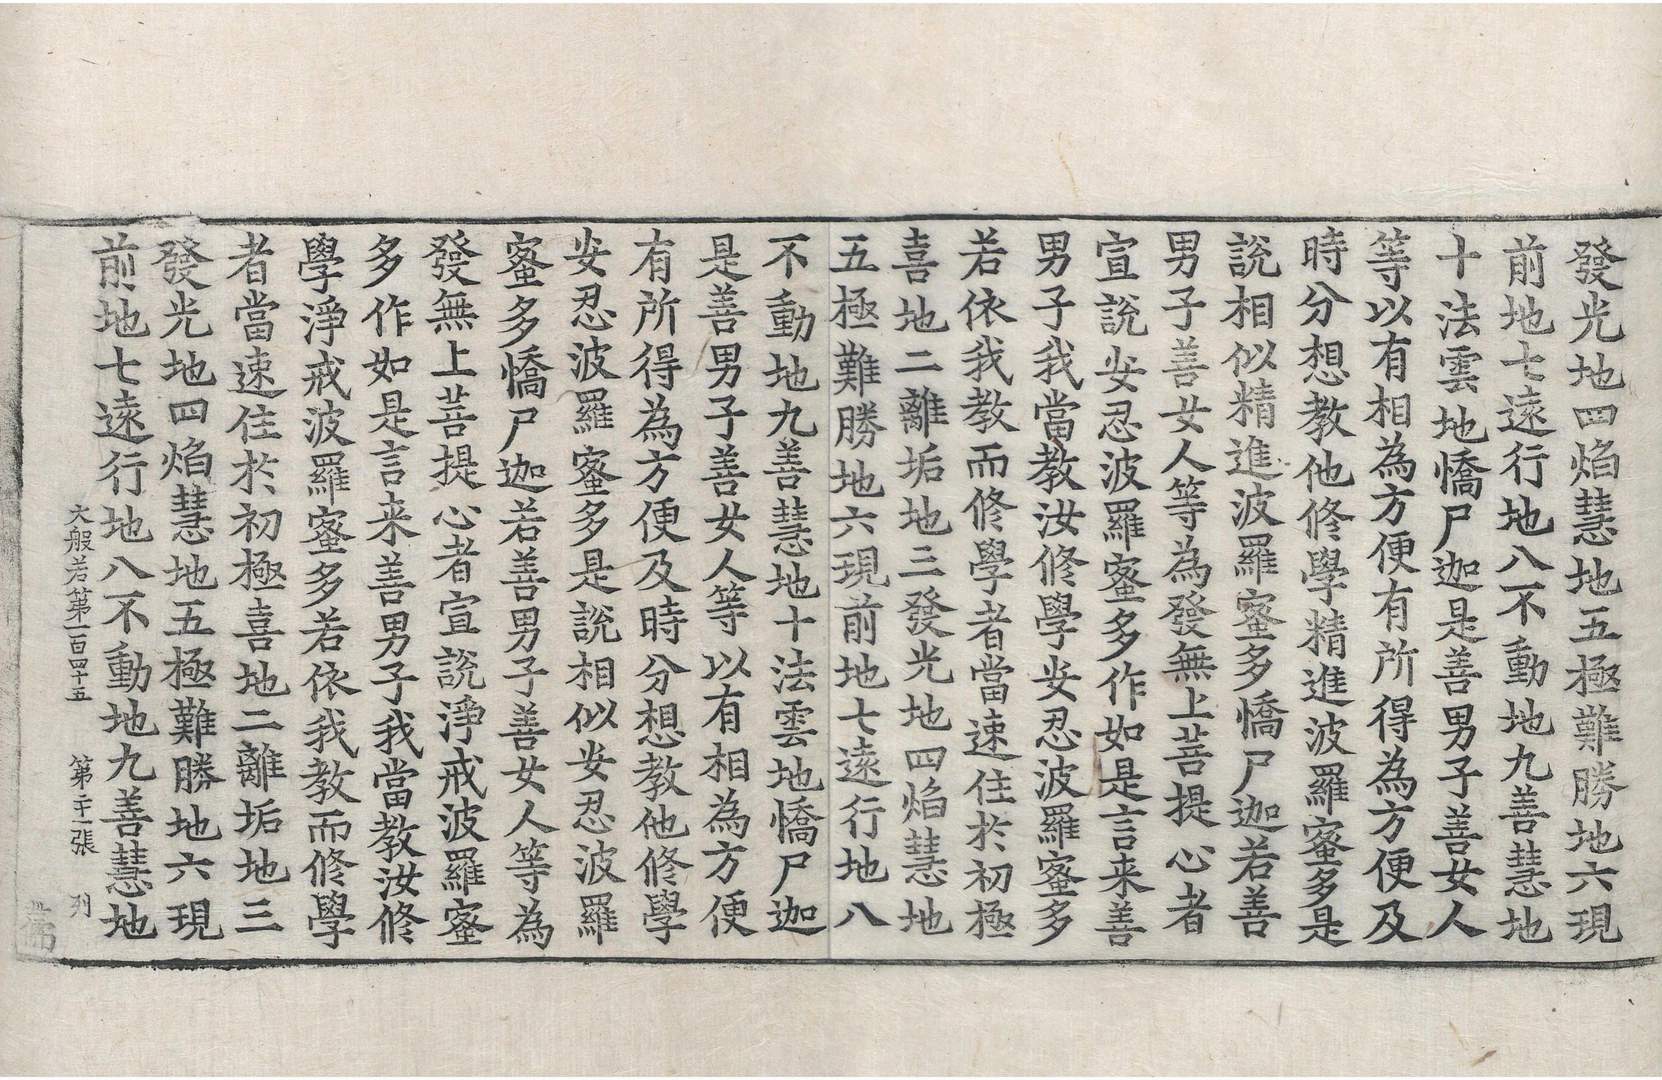 發光地四焰慧地五極難勝地六現
前地七遠行地八不動地九善慧地
十法雲地憍尸迦是善男子善女人
等以有相為方便有所得為方便及
時分想教他修學精進波羅蜜多是
說相似精進波羅蜜多憍尸迦若善
男子善女人等為發無上菩提心者
宣說安忍波羅蜜多作如是言来善
男子我當教汝修學安忍波羅蜜多
若依我教而修學者當速住於初極
喜地二離垢地三發光地四焰慧地
五極難勝地六現前地七遠行地八
不動地九善慧地十法雲地憍尸迦
是善男子善女人等以有相為方便
有所得為方便及時分想教他修學
安忍波羅蜜多是說相似安忍波羅
蜜多憍尸迦若善男子善女人等為
發無上菩提心者宣說淨戒波羅蜜
多作如是言来善男子我當教汝修
學淨戒波羅蜜多若依我教而修學
者當速住於初極喜地二離垢地三
發光地四焰慧地五極難勝地六現
前地七遠行地八不動地九善慧地
大般若第一百四十五 第二十一張 列